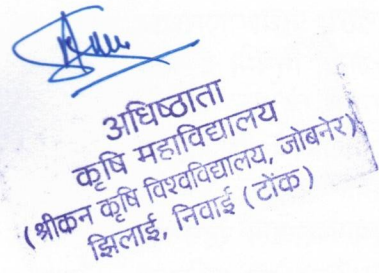 अधिष्ठाता
कृषि महाविद्यालय
(श्रीकन कृषि विश्वविद्यालय, जोबनेर)
झिलाई, निवाई (टोंक)